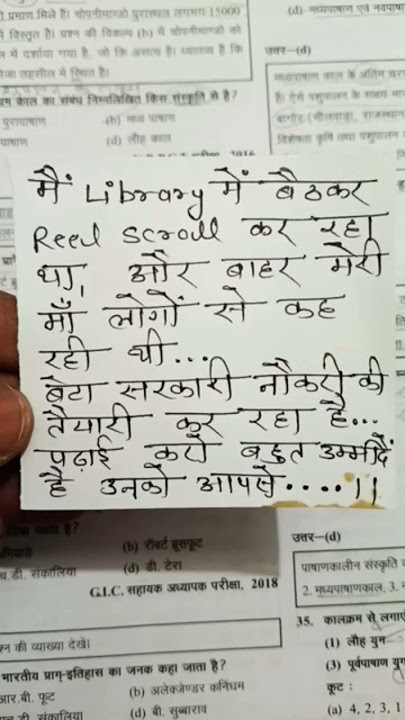 प्रमाण मिले हैं। चोपनीमाण्डो पुरास्थल लगभग 15000
विस्तृत है। प्रश्न की विकल्प (b) में चोपनीमाण्डो को
में दर्शाया गया है, जो कि असत्य है। ध्यातव्य है कि
मेजा तहसील में स्थित है।
काल का संबंध निम्नलिखित किस संस्कृति से है?
पुरापाषाण (b) मध्य पाषाण
पाषाण (d) लौह काल
(d) मध्यपाषाण एवं
उत्तर–(d)
मध्यपाषाण काल के अंतिम
पशुपालन के साक्ष्य
बागोर (भीलवाड़ा, राजस्थान
विशेषता कृषि तथा पशुपालन
मैं Library में बैठकर
Reel scroll कर रहा
था, और बाहर मेरी
माँ लोगों से कह
रही थी...
बेटा सरकारी नौकरी की
तैयारी कर रहा है...
पढ़ाई करो बहुत उम्मीदें
है उनको आपसे....।।
(b) रॉबर्ट ब्रूसफूट
एच.डी. संकालिया (d) डी. टेरा
G.I.C. सहायक अध्यापक परीक्षा, 2018
की व्याख्या देखें।
भारतीय प्राग्-इतिहास का जनक कहा जाता है?
आर.बी. फूट (b) अलेक्जेण्डर कनिंघम
एच.डी. संकालिया (d) बी. सुब्बाराव
उत्तर–(d)
पाषाणकालीन संस्कृति
2. मध्यपाषाणकाल, 3.
35. कालक्रम से लगाएं
(1) लौह युग
(3) पूर्वपाषाण युग
कूट :
(a) 4, 2, 3, 1